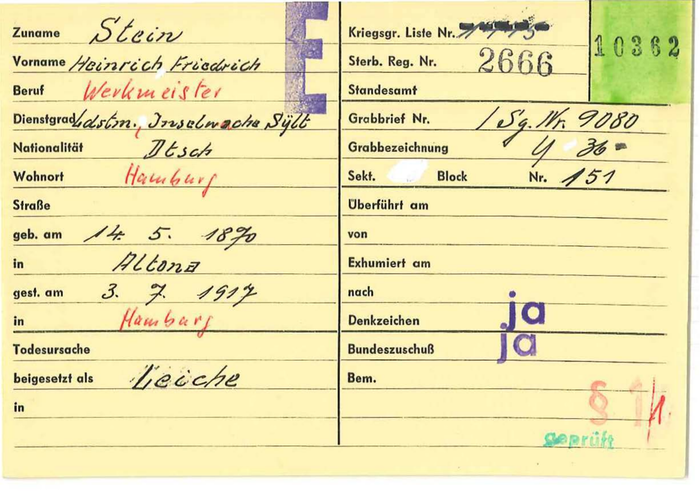 Zuname Stein
Vorname Heinrich Friedrich
Beruf Werkmeister
Dienstgrad Ldstm., Inselwache Sylt
Nationalität Dtsch
Wohnort Hamburg
Straße
geb. am 14. 5. 1870
in Altona
gest. am 3. 7. 1917
in Hamburg
Todesursache
beigesetzt als Leiche
in
E
Kriegsgr. Liste Nr.
Sterb. Reg. Nr. 2666
Standesamt
10362
Grabbrief Nr. / Sg. Nr. 9080
Grabbezeichnung 36
Sekt. Block Nr. 151
Überführt am
von
Exhumiert am
nach
Denkzeichen ja
Bundeszuschuß ja
Bem.
§ 1/1.
geprüft